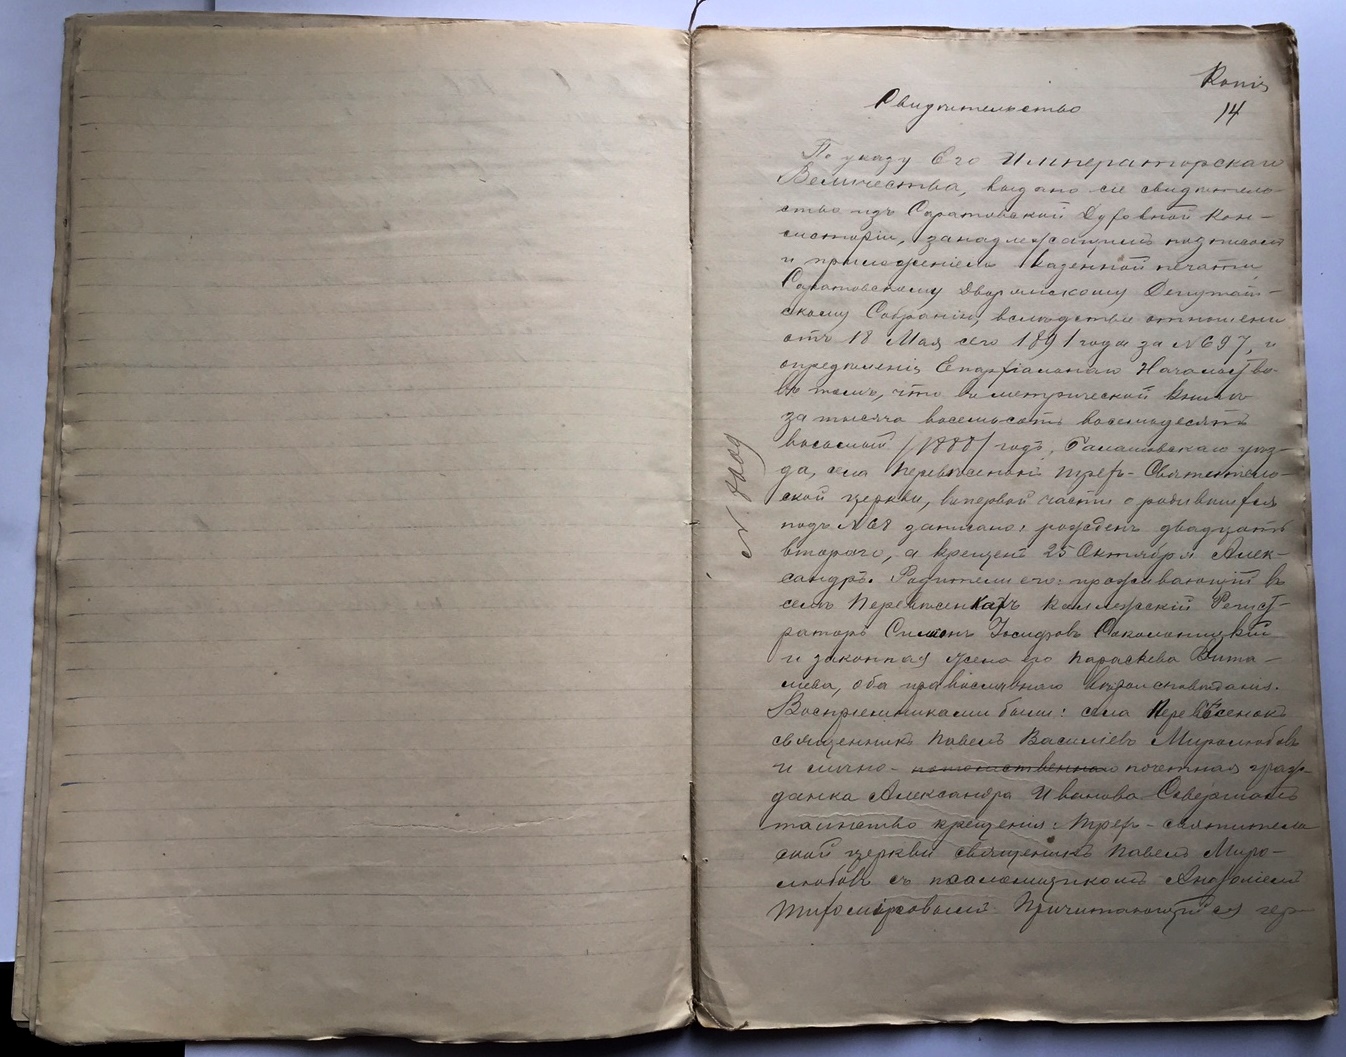 Копія
14
Свидѣтельство
По указу Его Императорскаго
Величества, выдано сіе свидѣтель-
ство изъ Саратовской Духовной Кон-
систоріи, за надлежащимъ подписомъ
и приложеніемъ казенной печати,
Саратовскому Дворянскому Депутат-
скому Собранію, вслѣдствіе отношенія
отъ 18 Мая сего 1891 года за № 697, и
опредѣленія Епархіальнаго Начальства
въ томъ, что въ метрической книгѣ
за тысяча восемьсотъ восемьдесятъ
восьмой /1888/ годъ, Балашовскаго уѣз-
да, села Перевѣсенокъ Трехъ-Святитель-
ской церкви, въ первой части о родившихся
подъ № 68 записано: рожденъ двадцать
втораго, а крещенъ 25 Октября Алек-
сандръ. Родители его: проживающій въ
селѣ Перевѣсенкахъ Коллежскій Регист-
раторъ Симеонъ Іосифовъ Соколовицкій
и законная жена его Параскева Вита-
ліева, оба православнаго вѣроисповѣданія.
Воспріемниками были: села Перевѣсенокъ
священникъ Павелъ Василіевъ Миролюбовъ
и лично- потомственная почетная граж-
данка Александра Иванова Совершалъ
таинство крещенія: Трехъ-святитель
ской церкви священникъ Павелъ Миро-
любовъ съ псаломщикомъ Анатоліемъ
Тихоміровымъ Причитающійся гер-
№ 8009